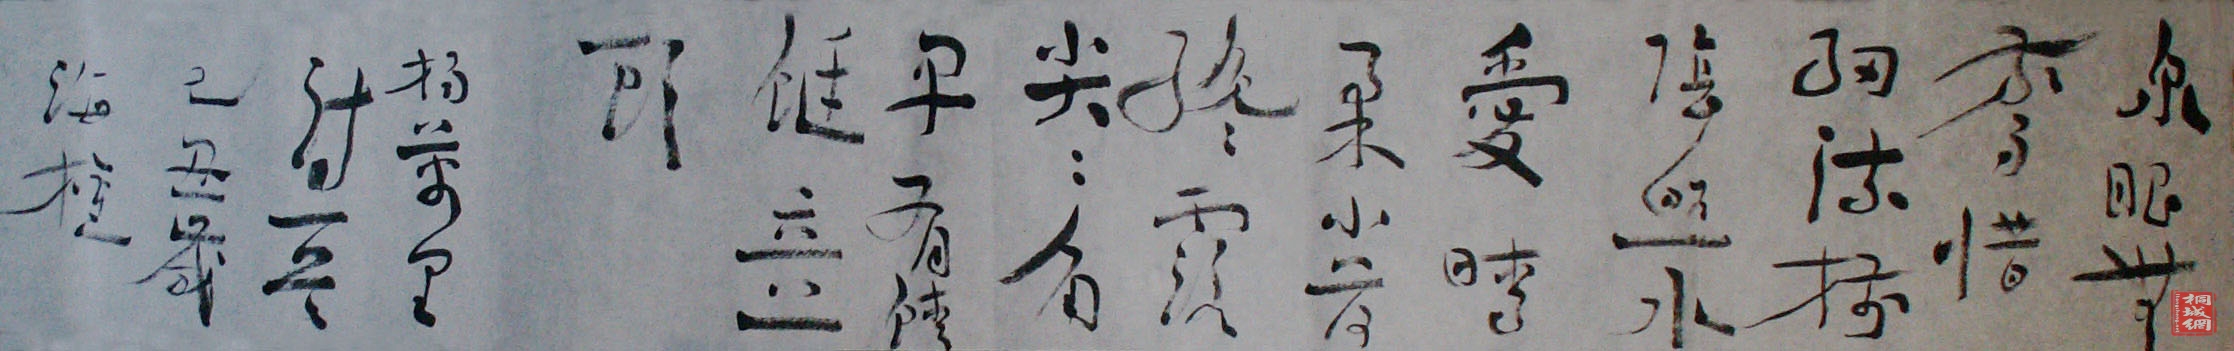 泉眼無
聲惜
細流樹
陰照水
愛晴
柔小荷
纔露
尖尖角
早有蜻
蜓立上
頭
楊萬里
詩一首
己丑歲
海
桐城網